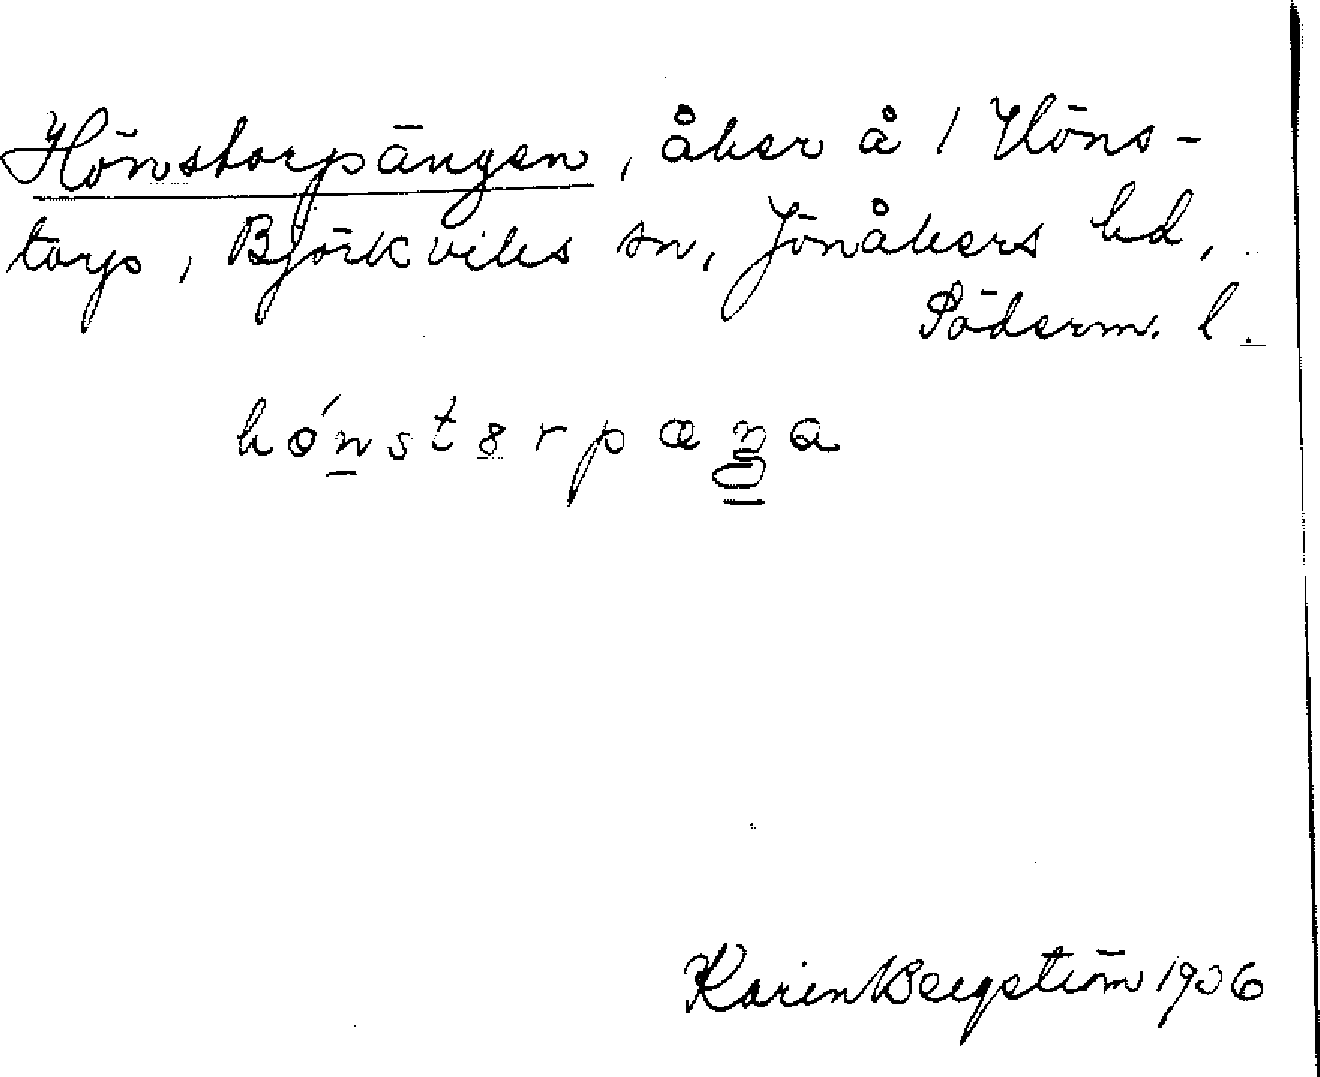 Hönstorpängen, åker å 1 Höns-
torp, Björkviks sn, Jönåkers hd,
Söderm. l.
Karin Bergström 1936